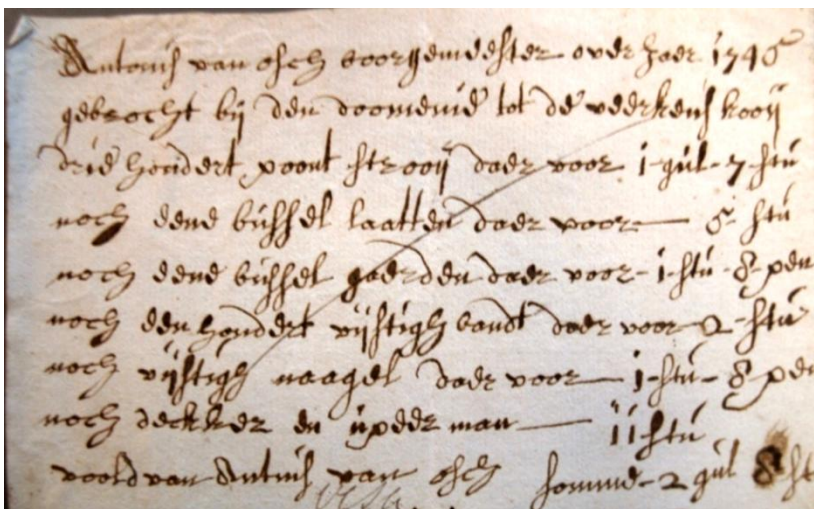 Antonis van osch boorgemeester over Jaer 1746
gebrocht bij den doomenie tot de veerkens kooij
drie hondert poont strooij daer voor 1-gul-7-stu
noch eene bussel laatten daer voor — 6-stu
noch eene bussel gaerden daer voor-1-stu-8-pen
noch een hondert vijftigh bandt daer voor 2-stu
noch vijftigh naagel daer voor — 1-stu-8-pen
noch deckker en upeer man — 11 stu
van Antnis van osch somme-2 gul 8 st